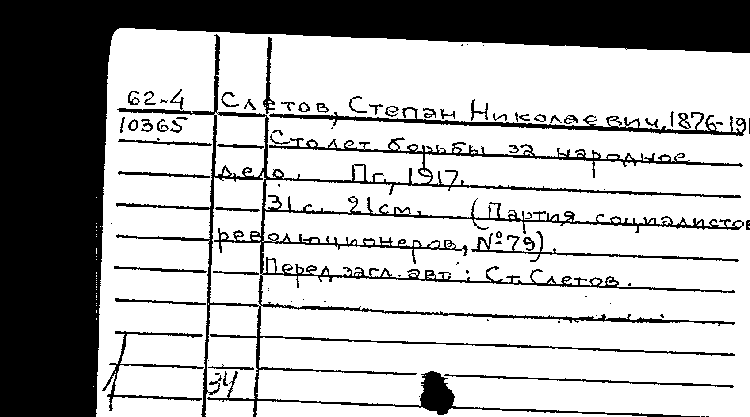 62-4 Слетов, Степан Николаевич, 1876-191
10365 Сто лет борьбы за народное
дело. Пг., 1917.
31 с. 21 см. (Партия социалистов
революционеров, №79).
Перед загл. авт.: Ст. Слетов.
34